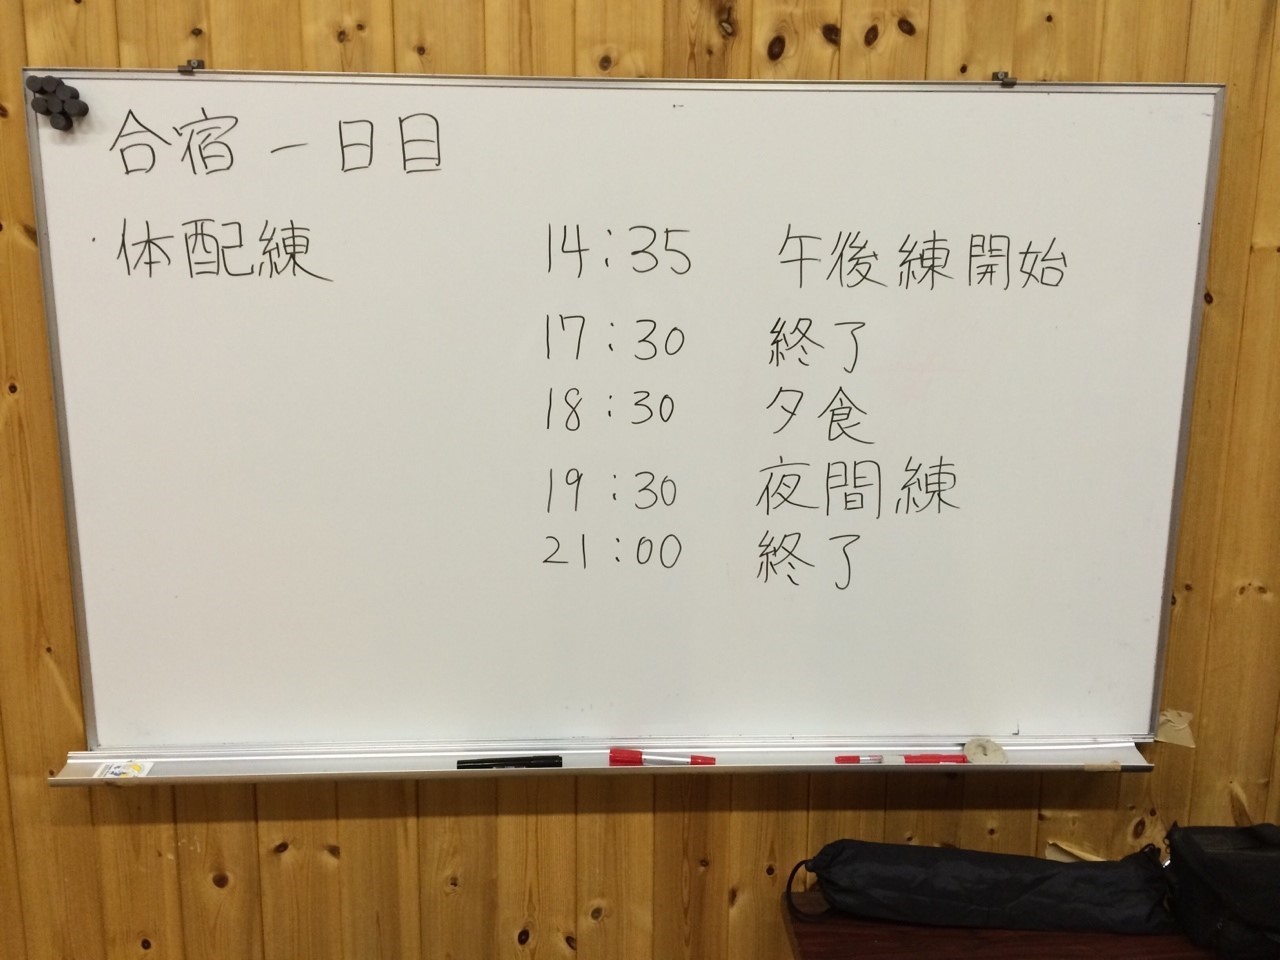 合宿一日目
・体配練 14:35 午後練開始
17:30 終了
18:30 夕食
19:30 夜間練
21:00 終了